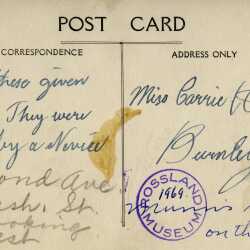 POST CARD
CORRESPONDENCE
ADDRESS ONLY
these given
They were
by a Novice
ond Ave
ash. St.
oking
est
Miss Carrie
Burnley
ROSSLAND
1969
MUSEUM
on th